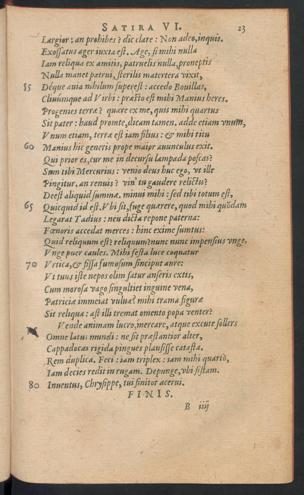 SATIRA VI. 23
Largior: an prohibes? dic clare: Non adeo, inquis.
Exossatus ager iuxta est. Age, si mihi nulla
Iam reliqua ex amitis, patruelis nulla, proneptis
Nulla manet patrui, sterilis matertera vixit,
55 Déque auia nihilum superest: accedo Bouillas,
Cliuúmque ad Virbi: præsto est mihi Manius heres.
Progenies terræ? quære ex me, quis mihi quartus
Sit pater: haud promte, dicam tamen. adde etiam vnum,
Vnum etiam, terræ est iam filius: & mihi ritu
60 Manius hic generis prope maior auunculus exit.
Qui prior es, cur me in decursu lampada poscas?
Sum tibi Mercurius: venio deus huc ego, vt ille
Pingitur. an renuis? vin' tu gaudere relictis?
Deest aliquid summæ. minui mihi: sed tibi totum est,
65 Quicquid id est. Vbi sit, fuge quærere, quod mihi quōdam
Legarat Tadius: neu dicta repone paterna:
Fœnoris accedat merces: hinc exime sumtus:
Quid reliquum est? reliquum? nunc nunc impensius vnge,
Vnge puer caules. Mihi festa luce coquatur
70 Vrtica, & fissa fumosum sinciput aure:
Vt tuus iste nepos olim satur anseris extis,
Cum morosa vago singultiet inguine vena,
Patriciæ immeiat vuluæ? mihi trama figuræ
Sit reliqua: ast illi tremat omento popa venter?
Vende animam lucro, mercare, atque excute sollers
Omne latus mundi: ne sit præstantior alter,
Cappadocas rigida pingues plausisse catasta.
Rem duplica. Feci: iam triplex: iam mihi quartò,
Iam decies redit in rugam. Depunge, vbi sistam.
80 Inuentus, Chrysippe, tui finitor acerui.
FINIS.
B iiij